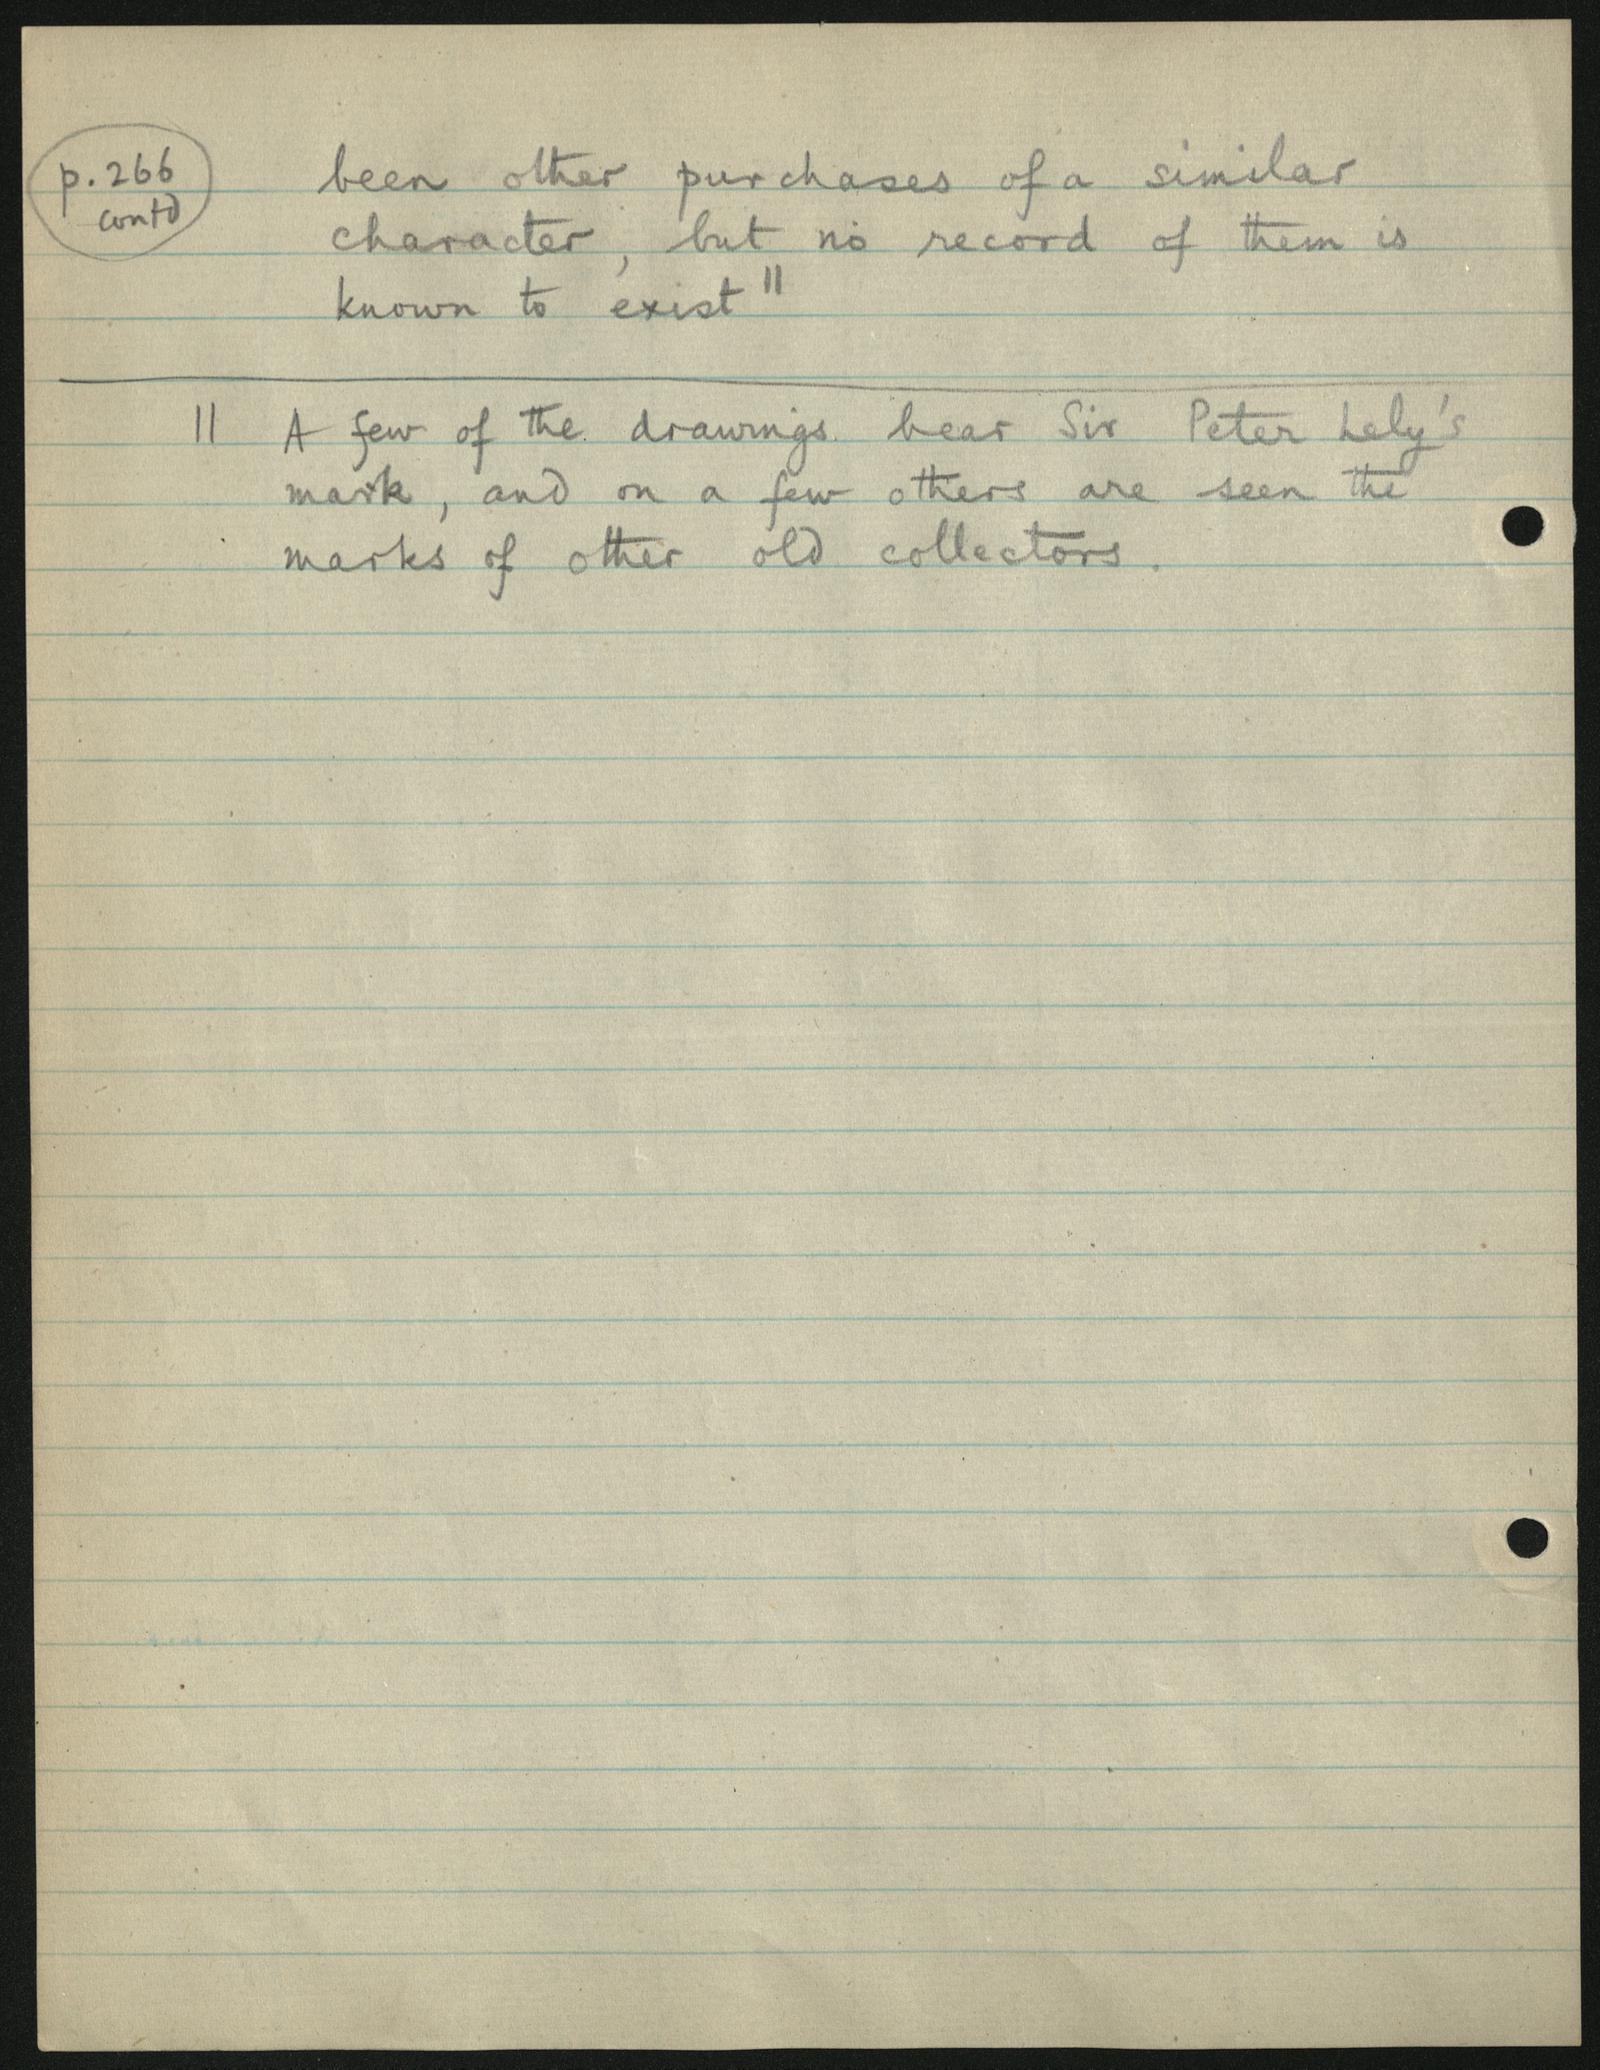 p. 266
contd
been other purchases of a similar
character, but no record of them is
known to exist ||
|| A few of the drawings bear Sir Peter Lely's
mark, and on a few others are seen the
marks of other old collectors.